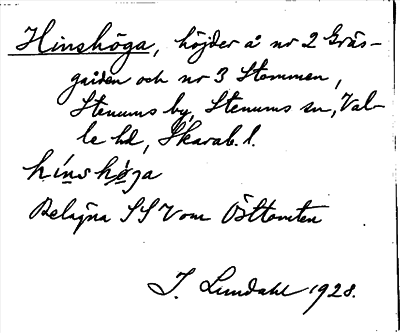 Hinshöga, höjder å nr 2 Gräs-
gården och nr 3 Stommen,
Stenums by, Stenums sn, Val-
le hd, Skarab. l.
hinshöga
Belägna SSV om Östtomten
I. Lundahl 1928.